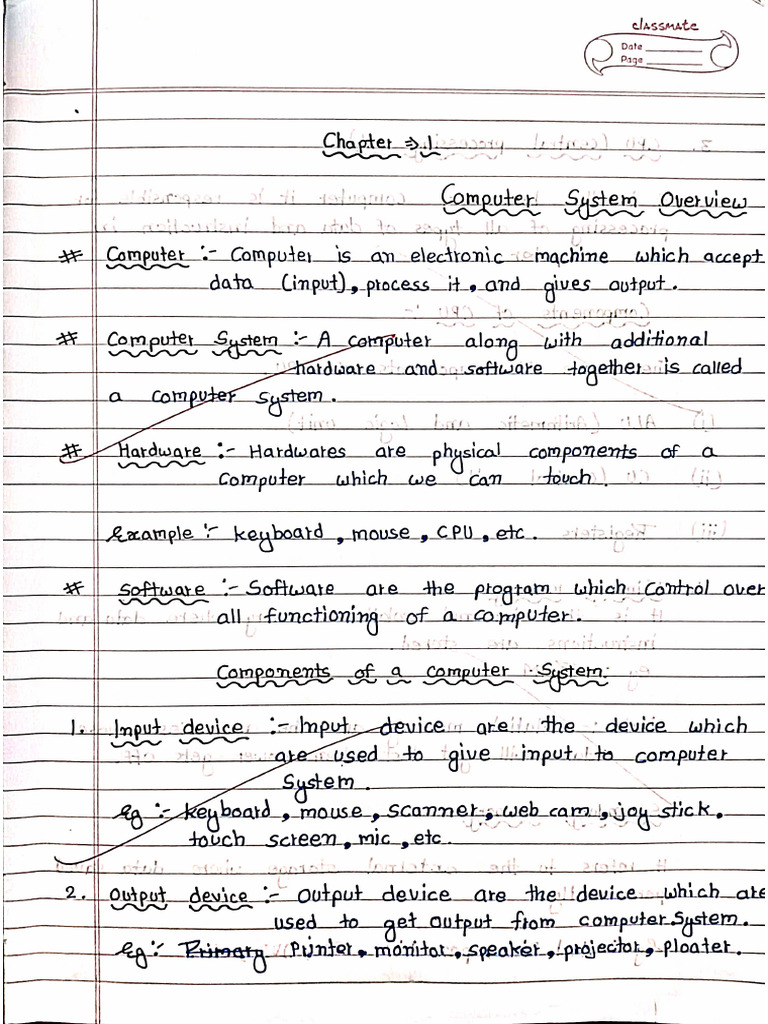 classmate
Date
Page
Chapter ⇒ 1
Computer System Overview
# Computer :- Computer is an electronic machine which accept
data (input), process it, and gives output.
# Computer System :- A computer along with additional
hardware and software together is called
a computer system.
# Hardware :- Hardwares are physical components of a
Computer which we can touch.
Example :- keyboard, mouse, CPU, etc.
# Software :- Software are the program which control over
all functioning of a computer.
Components of a computer System:
1. Input device :- Input device are the device which
are used to give input to computer
System.
Eg :- keyboard, mouse, scanner, web cam, joy stick,
touch screen, mic, etc.
2. Output device :- Output device are the device which are
used to get output from computer System.
Eg :- Primary Printer, monitor, speaker, projector, ploater.